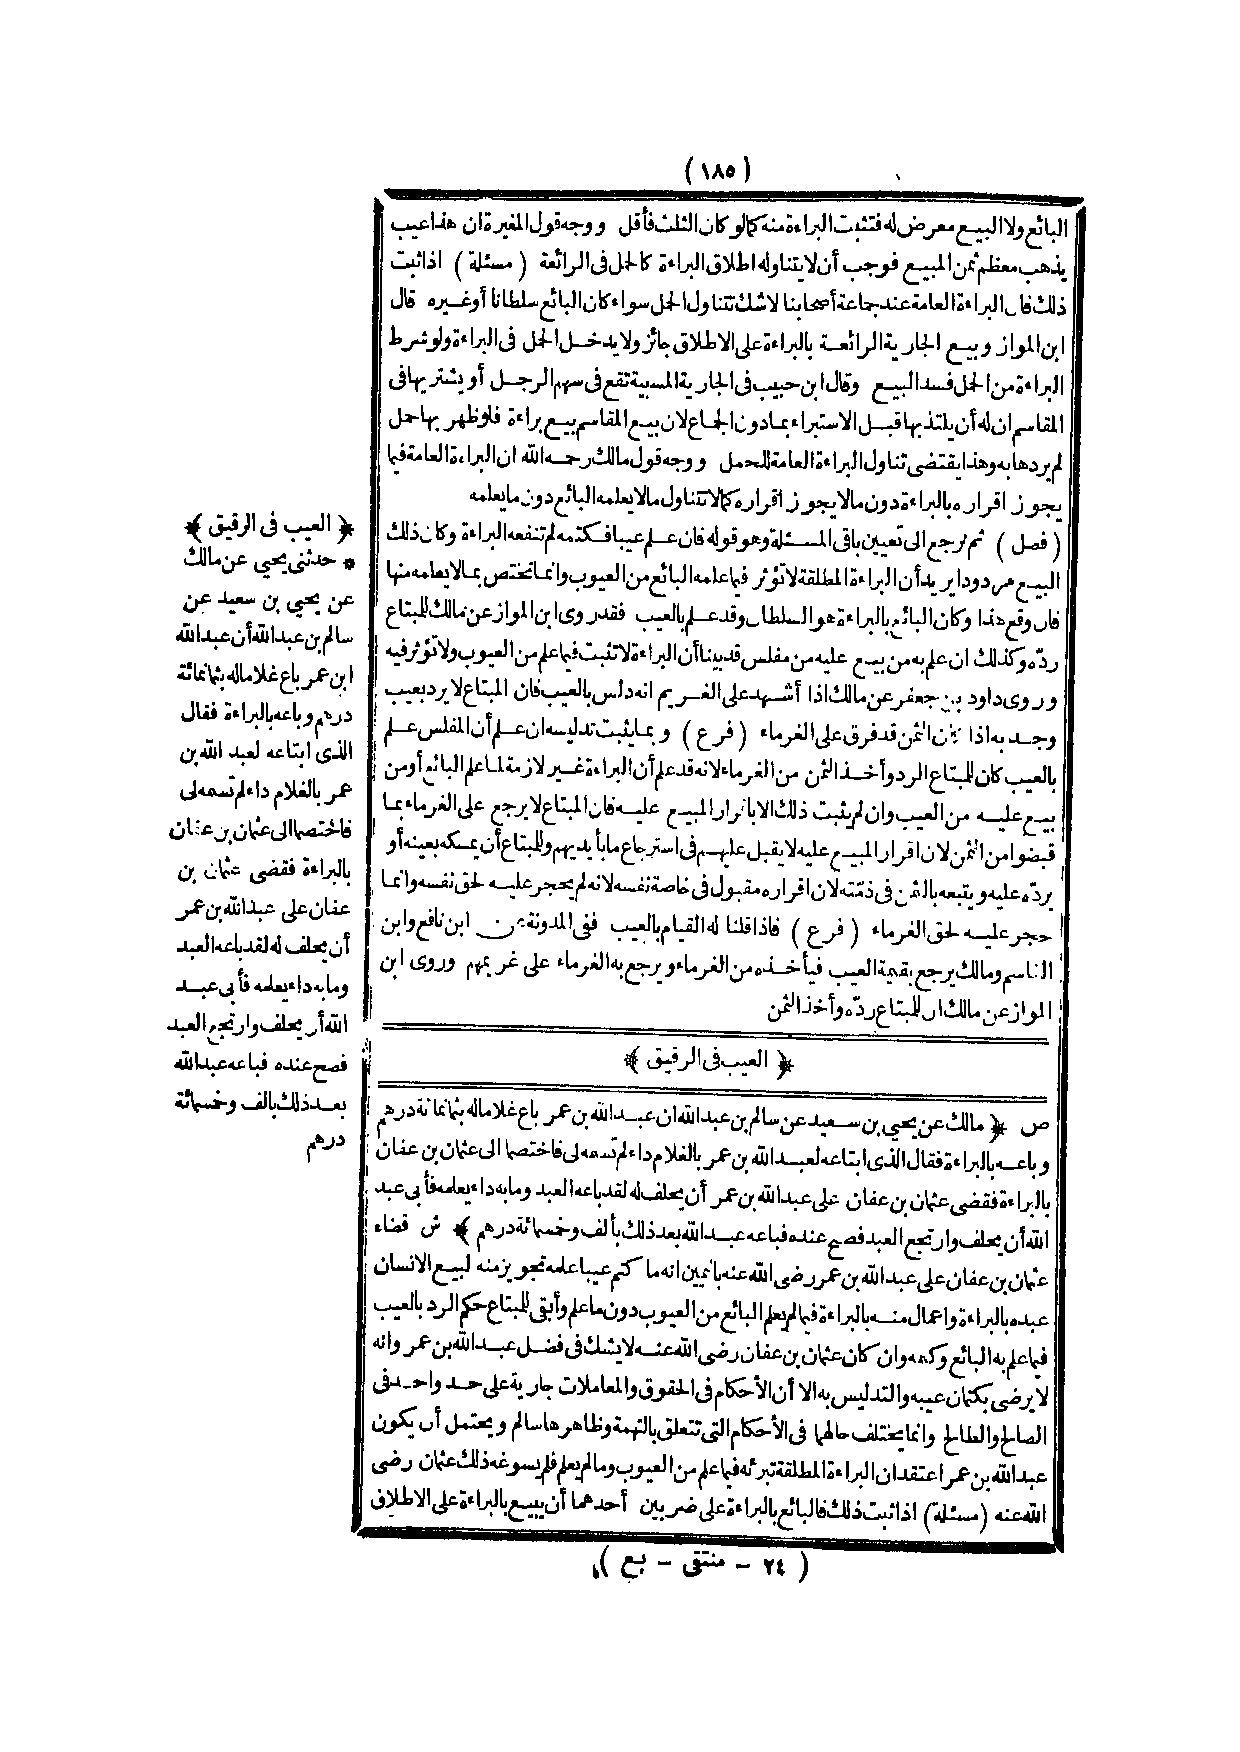 (١٨٥)
البائع ولا البيع معرض له فتثبت البراءة منه كما لو كان الثلث فأقل ووجه قول المغيرة ان هذا عيب
يذهب معظم ثمن المبيع فوجب أن لا يتناوله اطلاق البراءة كالحمل فى الرائعة (مسئلة) اذا ثبت
ذلك فان البراءة العامة عند جماعة أصحابنا لاشك تتناول الحمل سواء كان البائع سلطانا أو غيره قال
ابن المواز وبيع الجارية الرائعة بالبراءة على الاطلاق جائز ولا يدخل الحمل فى البراءة ولو شرط
البراءة من الحمل فسد البيع وقال ابن حبيب فى الجارية المسبية تقع فى سهم الرجل أو يشتريها فى
المقاسم ان له أن يلتذ بها قبل الاستبراء بما دون الجماع لان بيع المقاسم بيع براءة فلو ظهر بها حمل
لم يردها به وهذا يقتضى تناول البراءة العامة للحمل ووجه قول مالك رحمه الله ان البراءة العامة فيما
يجوز اقراره بالبراءة دون ما لا يجوز اقراره كما لا تتناول ما لا يعلمه البائع دون ما يعلمه
(فصل) ثم نرجع الى تعيين باقى المسئلة وهو قوله فان علم عيبا فكتمه لم تنفعه البراءة وكان ذلك
البيع مردودا يريد أن البراءة المطلقة لا تؤثر فيما علمه البائع من العيوب وانما تختص بما لا يعلمه منها
فان وقع هذا وكان البائع بالبراءة هو السلطان وقد علم بالعيب فقد روى ابن المواز عن مالك للمبتاع
ردّه وكذلك ان علم به من بيع عليه من مفلس قد بينا أن البراءة لا تثبت فيما علم من العيوب ولا تؤثر فيه
وروى داود بن جعفر عن مالك اذا أشهد على الغريم انه دلس بالعيب فان المبتاع لا يرد بعيب
وجد به اذا كان الثمن قد فرق على الغرماء (فرع) وبما يثبت تدليسه ان علم أن المفلس علم
بالعيب كان للمبتاع الرد وأخذ الثمن من الغرماء لانه قد علم أن البراءة غير لازمة لما علم البائع أو من
بيع عليه من العيب وان لم يثبت ذلك الا باقرار المبيع عليه فان المبتاع لا يرجع على الغرماء بما
قبضوا من الثمن لان اقرار المبيع عليه لا يقبل عليهم فى استرجاع ما بأيديهم وللمبتاع أن يمسكه بعينه أو
يردّه عليه ويتبعه بالثمن فى ذمّته لان اقراره مقبول فى خاصة نفسه لانه لم يحجر عليه لحق نفسه وانما
حجر عليه لحق الغرماء (فرع) فاذا قلنا له القيام بالعيب ففى المدونة عن ابن نافع وابن
القاسم ومالك يرجع بقيمة العيب فيأخذه من الغرماء ويرجع به الغرماء على غريمهم وروى ابن
المواز عن مالك ان للمبتاع ردّه وأخذ الثمن
﴿ العيب فى الرقيق ﴾
ص ﴿ مالك عن يحيى بن سعيد عن سالم بن عبد الله ان عبد الله بن عمر باع غلاما له بثمانمائة درهم
وباعه بالبراءة فقال الذى ابتاعه لعبد الله بن عمر بالغلام داء لم تسمه لى فاختصما الى عثمان بن عفان
بالبراءة فقضى عثمان بن عفان على عبد الله بن عمر أن يحلف له لقد باعه العبد وما به داء يعلمه فأبى عبد
الله أن يحلف وارتجع العبد فصح عنده فباعه عبد الله بعد ذلك بألف وخمسمائة درهم ﴾ ش قضاء
عثمان بن عفان على عبد الله بن عمر رضى الله عنه باليمين انه ما كتم عيبا علمه تجويز منه لبيع الانسان
عبده بالبراءة واعمال منه بالبراءة فيما لم يعلم البائع من العيوب دون ما علم وأبقى للمبتاع حكم الرد بالعيب
فيما علم به البائع وكتمه وان كان عثمان بن عفان رضى الله عنه لا يشك فى فضل عبد الله بن عمر وانه
لا يرضى بكتمان عيبه والتدليس به الا أن الأحكام فى الحقوق والمعاملات جارية على حد واحد فى
الصالح والطالح وانما يختلف حالهما فى الأحكام التى تتعلق بالتهمة وظاهرها سالم ويحتمل أن يكون
عبد الله بن عمر اعتقد ان البراءة المطلقة تبرئه فيما علم من العيوب وما لم يعلم فلم يسوغه ذلك عثمان رضى
الله عنه (مسئلة) اذا ثبت ذلك فالبائع بالبراءة على ضربين أحدهما أن يبيع بالبراءة على الاطلاق
﴿ العيب فى الرقيق ﴾
* حدثنى يحيى عن مالك
عن يحيى بن سعيد عن
سالم بن عبد الله أن عبد الله
ابن عمر باع غلاما له بثمانمائة
درهم وباعه بالبراءة فقال
الذى ابتاعه لعبد الله بن
عمر بالغلام داء لم تسمه لى
فاختصما الى عثمان بن عفان
بالبراءة فقضى عثمان بن
عفان على عبد الله بن عمر
أن يحلف له لقد باعه العبد
وما به داء يعلمه فأبى عبد
الله أن يحلف وارتجع العبد
فصح عنده فباعه عبد الله
بعد ذلك بألف وخمسمائة
درهم
(٢٤ - منتقى - بع)